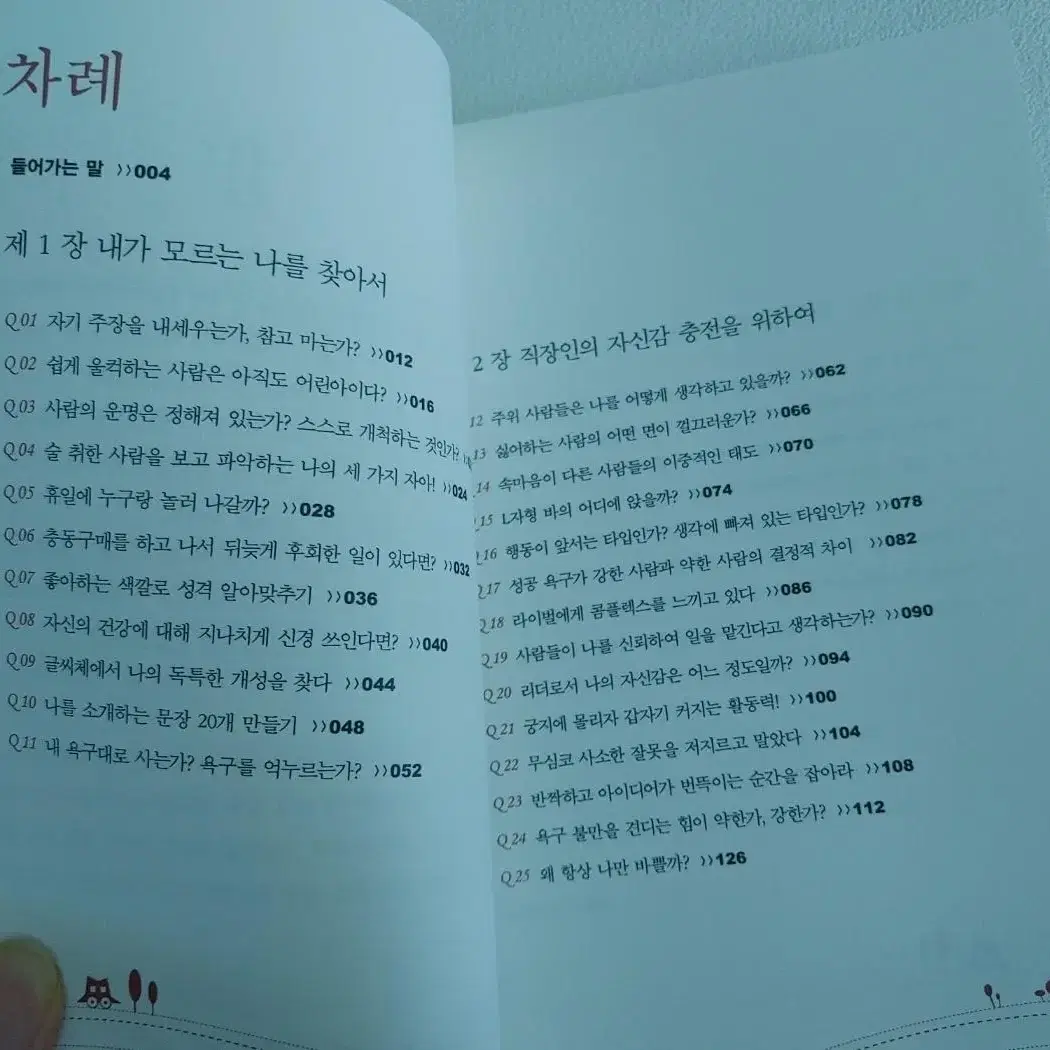 차례
들어가는 말 >>004
제 1 장 내가 모르는 나를 찾아서
Q.01 자기 주장을 내세우는가, 참고 마는가? >>012
Q.02 쉽게 울컥하는 사람은 아직도 어린아이다? >>016
Q.03 사람의 운명은 정해져 있는가? 스스로 개척하는 것인가?
Q.04 술 취한 사람을 보고 파악하는 나의 세 가지 자아! >>024
Q.05 휴일에 누구랑 놀러 나갈까? >>028
Q.06 충동구매를 하고 나서 뒤늦게 후회한 일이 있다면? >>032
Q.07 좋아하는 색깔로 성격 알아맞추기 >>036
Q.08 자신의 건강에 대해 지나치게 신경 쓰인다면? >>040
Q.09 글씨체에서 나의 독특한 개성을 찾다 >>044
Q.10 나를 소개하는 문장 20개 만들기 >>048
Q.11 내 욕구대로 사는가? 욕구를 억누르는가? >>052
2 장 직장인의 자신감 충전을 위하여
12 주위 사람들은 나를 어떻게 생각하고 있을까? >>062
13 싫어하는 사람의 어떤 면이 껄끄러운가? >>066
14 속마음이 다른 사람들의 이중적인 태도 >>070
15 L자형 바의 어디에 앉을까? >>074
16 행동이 앞서는 타입인가? 생각에 빠져 있는 타입인가? >>078
17 성공 욕구가 강한 사람과 약한 사람의 결정적 차이 >>082
Q.18 라이벌에게 콤플렉스를 느끼고 있다 >>086
Q.19 사람들이 나를 신뢰하여 일을 맡긴다고 생각하는가? >>090
Q.20 리더로서 나의 자신감은 어느 정도일까? >>094
Q.21 궁지에 몰리자 갑자기 커지는 활동력! >>100
Q.22 무심코 사소한 잘못을 저지르고 말았다 >>104
Q.23 반짝하고 아이디어가 번뜩이는 순간을 잡아라 >>108
Q.24 욕구 불만을 견디는 힘이 약한가, 강한가? >>112
Q.25 왜 항상 나만 바쁠까? >>126